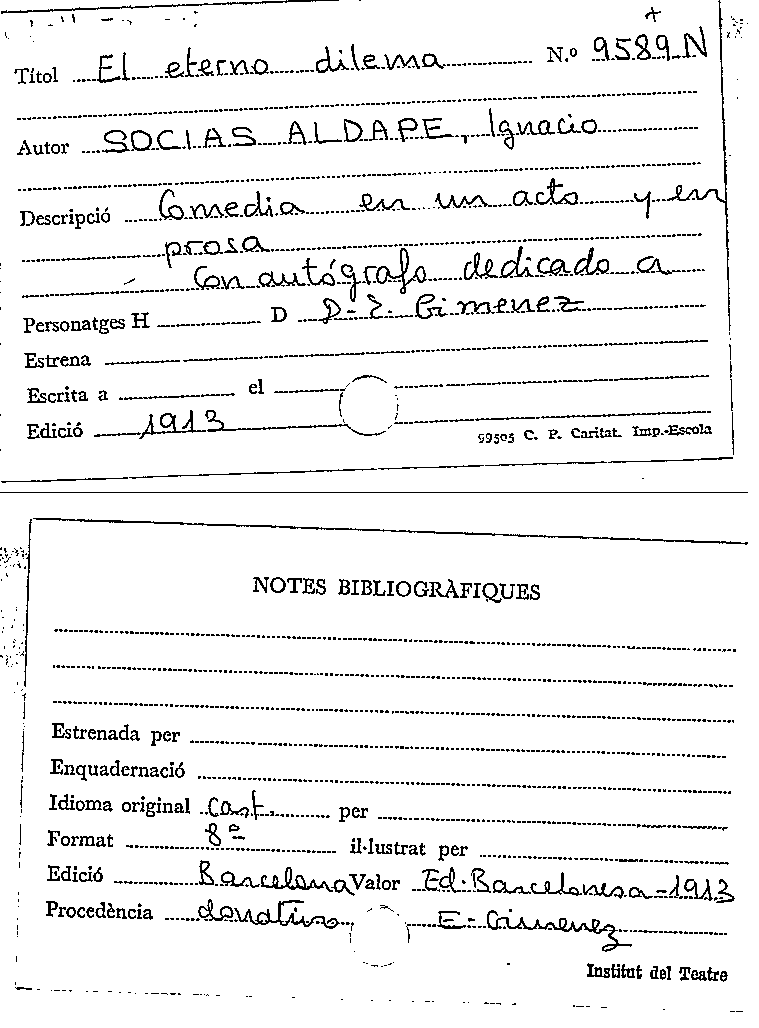 +
Títol El eterno dilema N.º 9589 N
Autor SOCIAS ALDAPE, Ignacio
Descripció Comedia en un acto y en
prosa
Con autógrafo dedicado a
Personatges H D D. E. Gimenez
Estrena
Escrita a el
Edició 1913
99505 C. P. Caritat. Imp.-Escola
NOTES BIBLIOGRÀFIQUES
Estrenada per
Enquadernació
Idioma original Cast. per
Format 8º il·lustrat per
Edició Barcelona Valor Ed. Barcelonesa - 1913
Procedència donativo E. Gimenez
Institut del Teatre